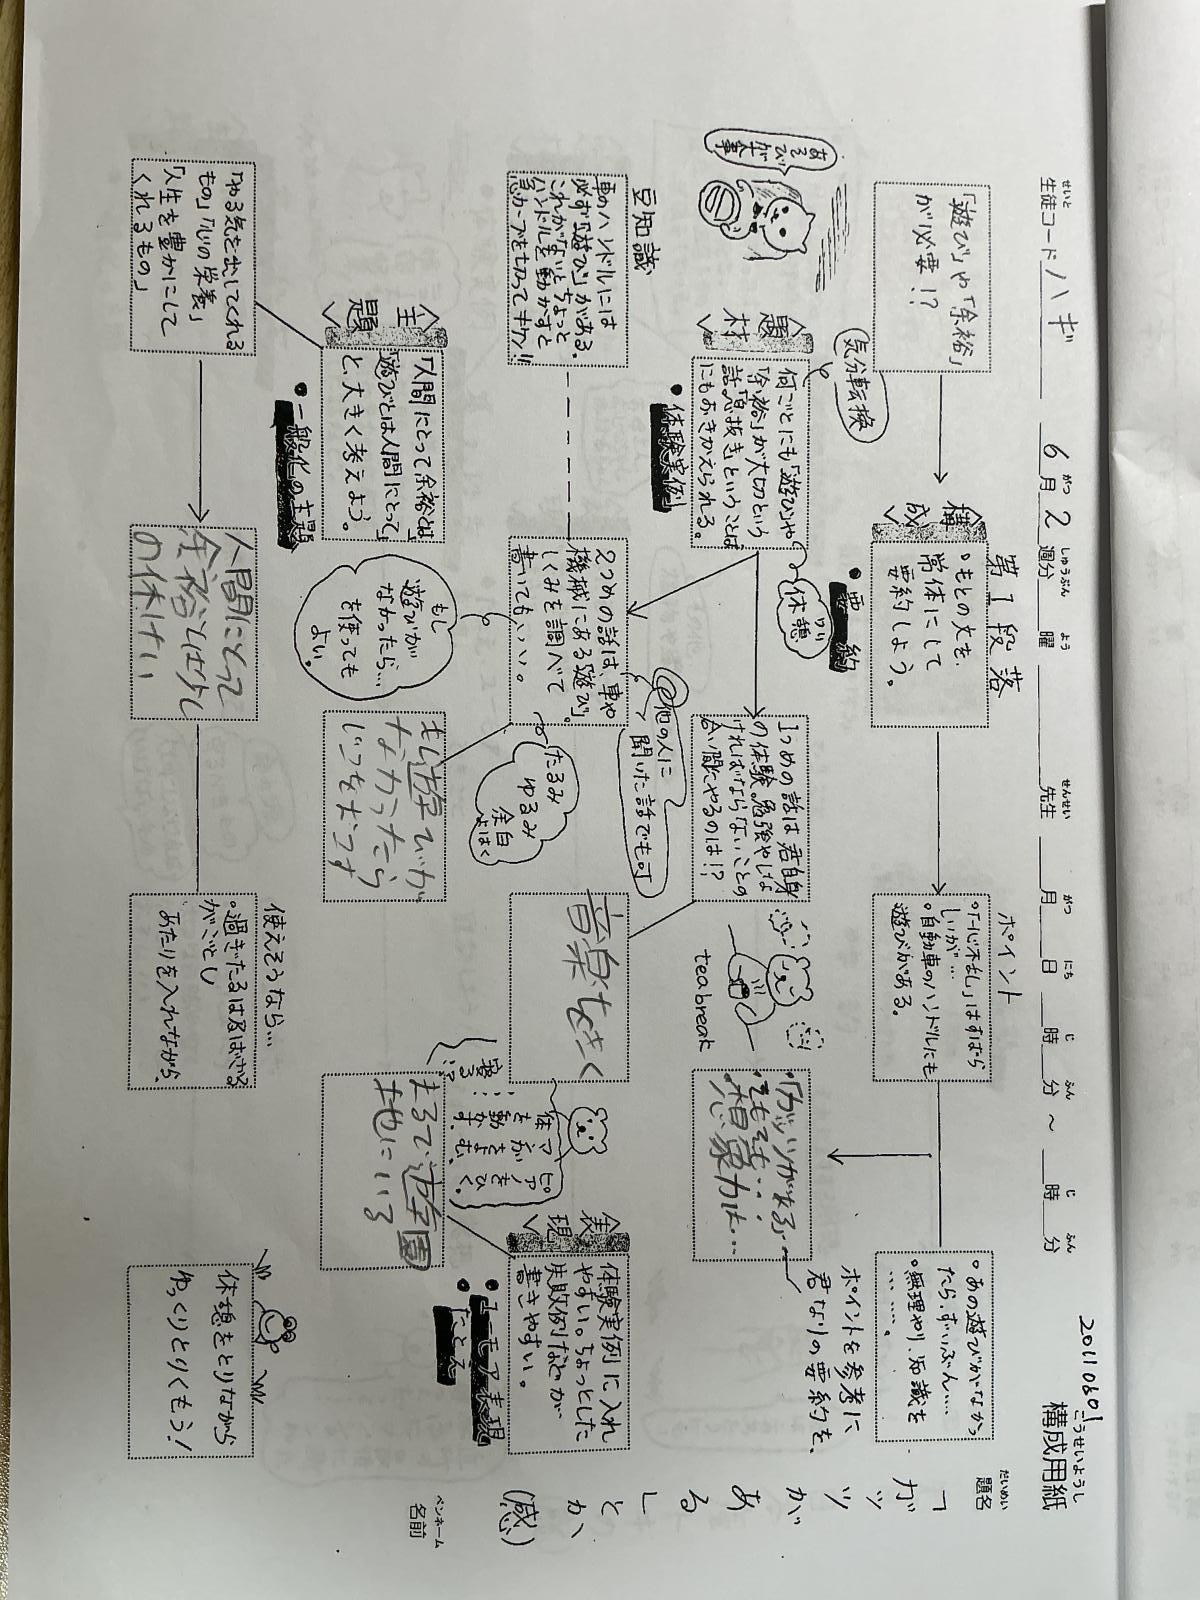 20110601
構成用紙
こうせいようし
生徒コード ハギ 6月2週分 曜 先生 月 日 時 分 ～ 時 分
せいと がつ しゅうぶん よう せんせい がつ にち じ ふん じ ふん
題名
だいめい
「ガッツがある」とか(感)
ペンネーム
名前
「遊び」や「余裕」
が必要!?
＜構成＞
第1段落
・もとの文を、
常体にして
要約しよう。
・要約
ポイント
・「一心不乱」はすばら
しいが…
・自動車のハンドルにも
遊びがある。
・あの遊びがなかっ
たら、ずいぶん……
・無理やり、知識を
……。
ポイントを参考に
君なりの要約を、
・「ガッツがある」
でもでも…
・想像力は…
あそびが大事
気分転換
＜題材＞
何ごとにも「遊び」や
「余裕」が大切という
話。「息抜き」ということば
にもおきかえられる。
・体験実例
休憩
1つめの話は君自身
の体験。勉強やしな
ければならないことの
合い間にやるのは!?
tea break
音楽をきく
ピアノをひく。
マンガをよむ。
体を動かす。
寝る!?
他の人に
聞いた話でも可
豆知識
車のハンドルには
必ず「遊び」がある。
これがないとちょっと
ハンドルを動かすと
急カーブを切ってキケン!!
2つめの話は、車や
機械にある「遊び」。
しくみを調べて
書いてもいい。
たるみ
ゆるみ
余白
よはく
もし
遊びが
なかったら…
を使っても
よい。
もし遊びが
なかったら
じこをおこす
＜表現＞
体験実例に入れ
やすい。ちょっとした
失敗例などが
書きやすい。
・ユーモア表現
たとえ
まるで遊園
地にいる
＜主題＞
「人間にとって余裕とは」
「遊びとは人間にとって」
と、大きく考えよう。
・一般化の主題
「やる気を出してくれる
もの」「心の栄養」
「人生を豊かにして
くれるもの」
人間にとって
余裕とは少し
の休けい
使えそうなら…
・過ぎたるは及ばざる
がごとし
あたりを入れながら、
休憩をとりながら
ゆっくりとりくもう!